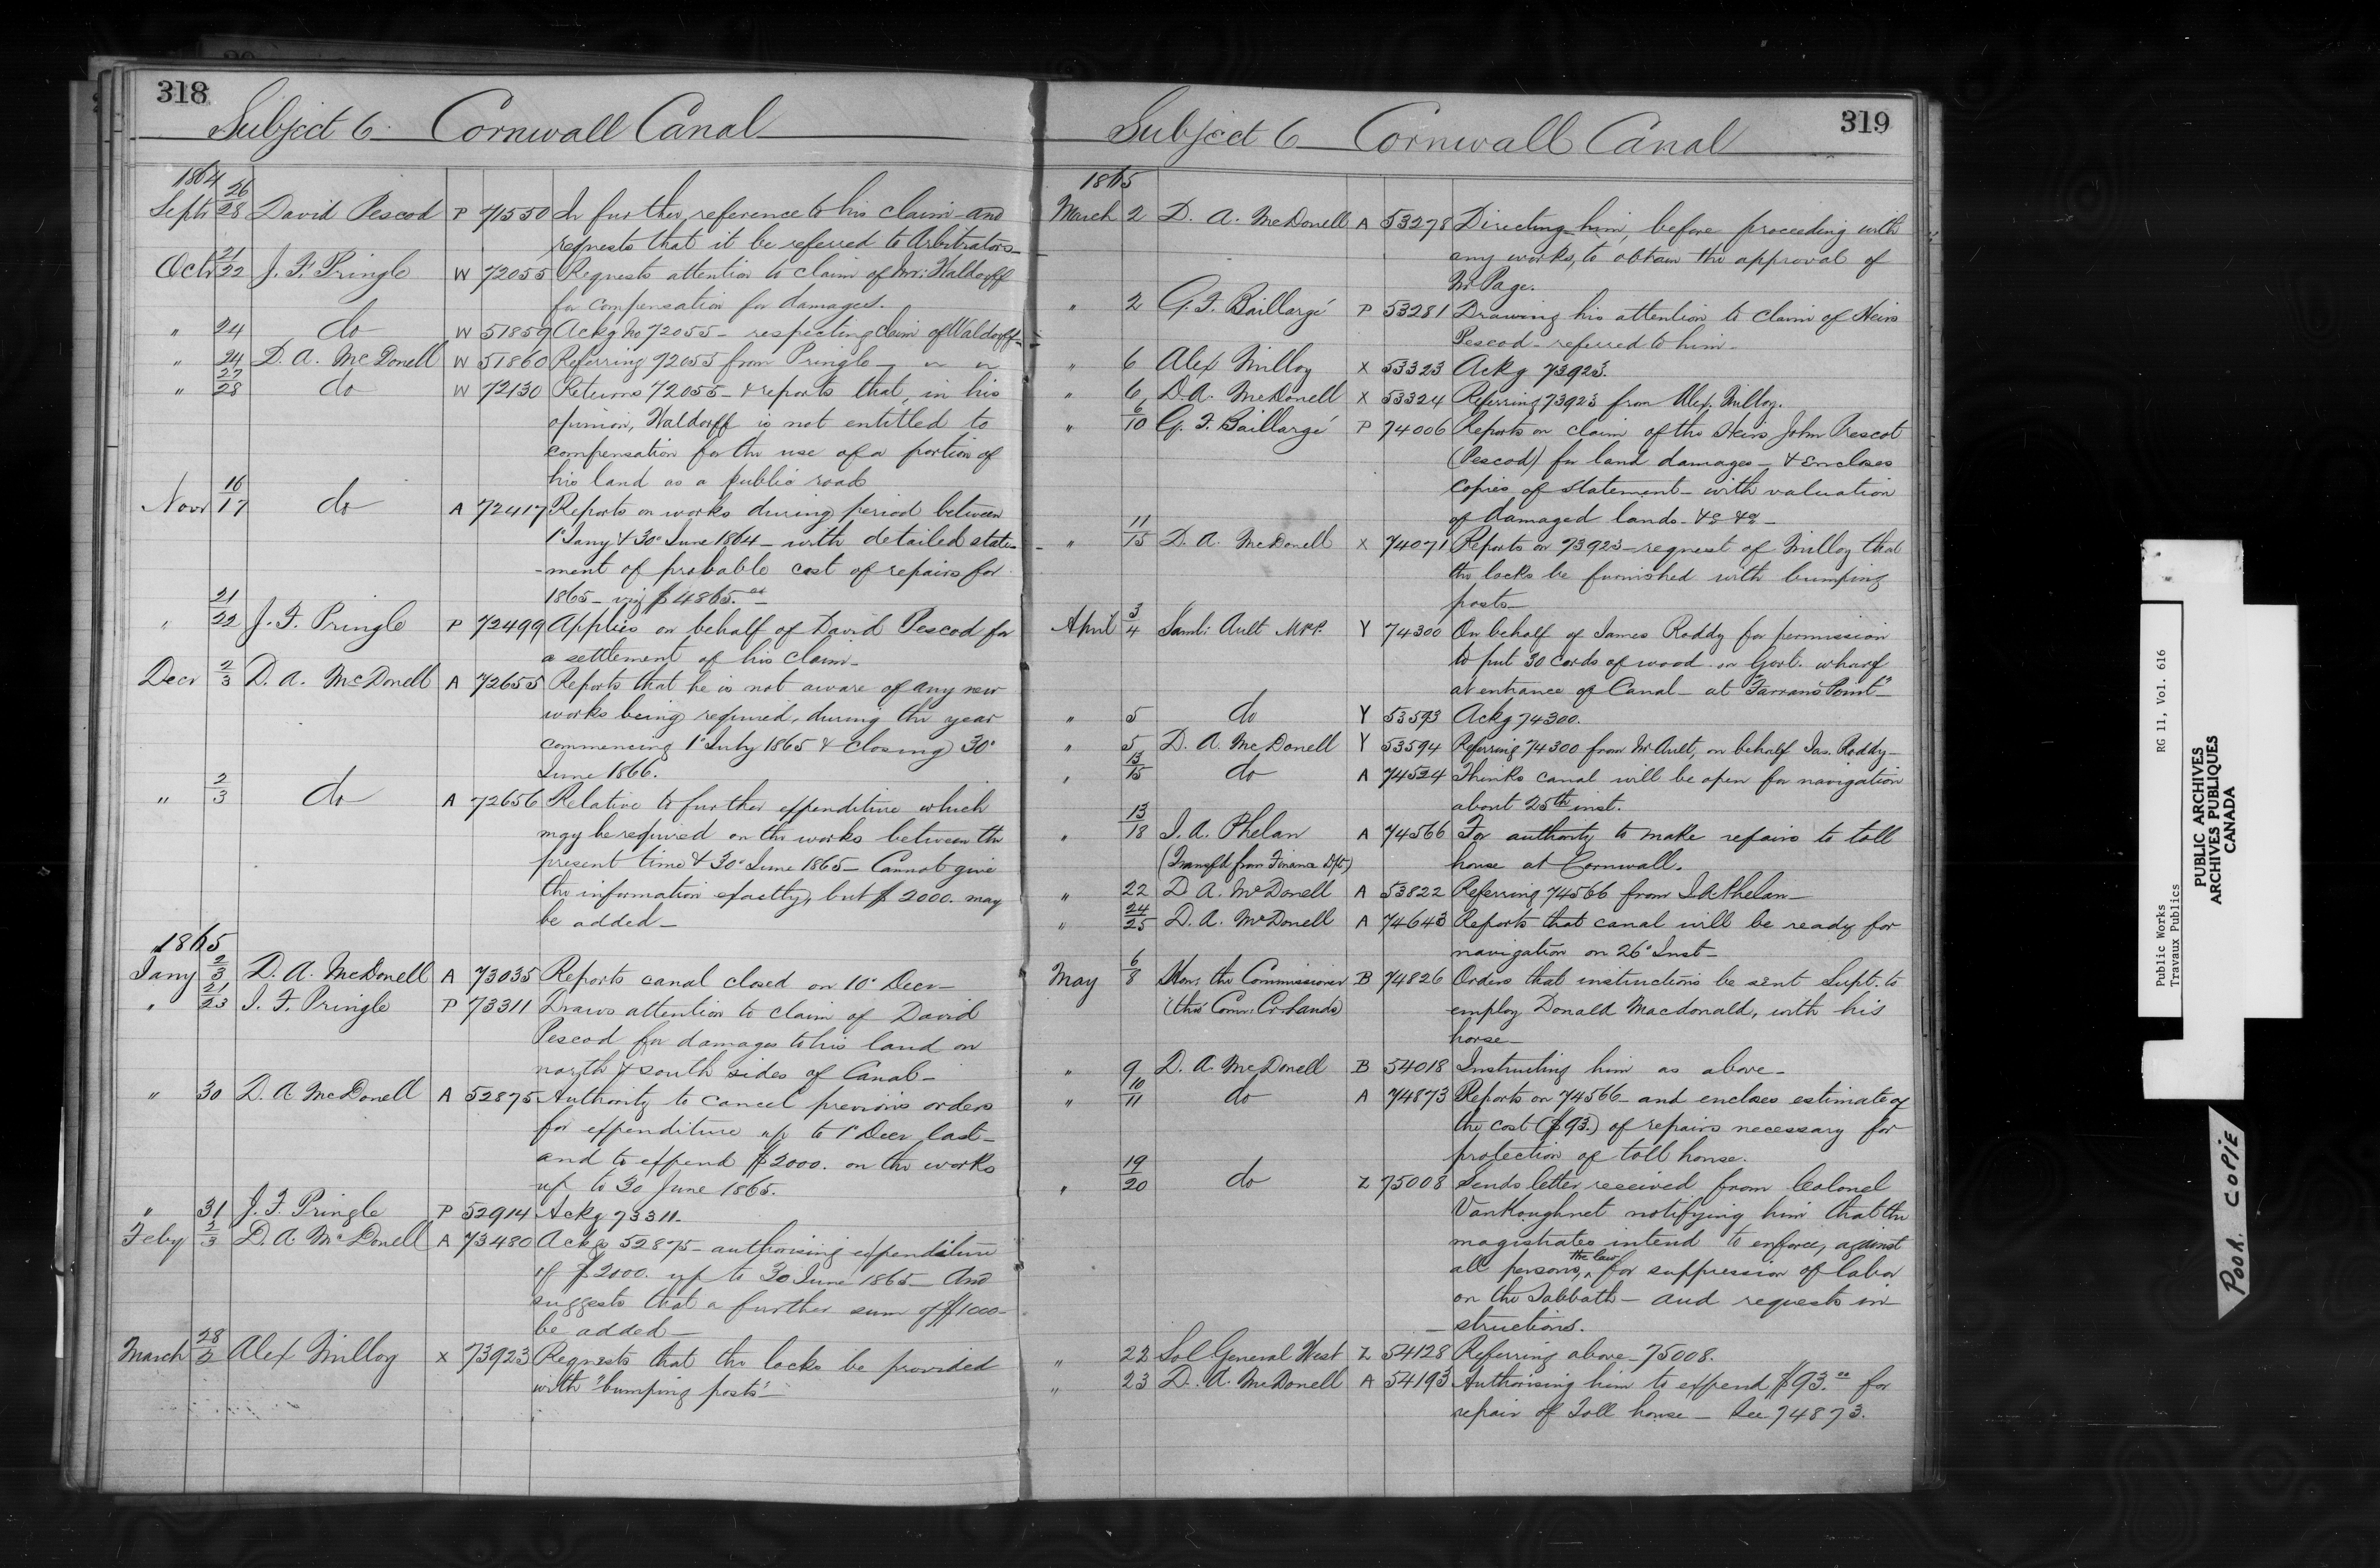 318
Subject 6 Cornwall Canal
1864
Septr 26/28 David Pescod P 71550 In further reference to his claim and
requests that it be referred to Arbitrators
Octr 21/22 J. F. Pringle W 72055 Requests attention to claim of Mr: Waldorff
for compensation for damages.
" 24 do W 51859 Ackg No 72055 - respecting claim of Waldorff -
" 24 D. A. McDonell W 51860 Referring 72055 from Pringle - " "
" 27/28 do W 72130 Returns 72055 - & reports that, in his
opinion, Waldorff is not entitled to
compensation for the use of a portion of
his land as a public road
Novr 16/17 do A 72417 Reports on works during period between
1st Jany & 30th June 1864 - with detailed state-
-ment of probable cost of repairs for
1865 - viz $4865.00
" 21/22 J. F. Pringle P 72499 Applies on behalf of David Pescod for
a settlement of his claim -
Decr 2/3 D. A. McDonell A 72655 Reports that he is not aware of any new
works being required, during the year
commencing 1st July 1865 & closing 30th
June 1866.
" 2/3 do A 72656 Relative to further expenditure which
may be required on the works between the
present time & 30th June 1865 - Cannot give
the information exactly, but $2000. may
be added -
1865
Jany 2/3 D. A. McDonell A 73035 Reports canal closed on 10th Decr -
" 21/23 J. F. Pringle P 73311 Draws attention to claim of David
Pescod for damages to his land on
north & south sides of Canal -
" 30 D. A. McDonell A 52875 Authority to cancel previous orders
for expenditure up to 1st Decr last -
and to expend $2000. on the works
up to 30 June 1865.
" 31 J. F. Pringle P 52914 Ackg 73311 -
Feby 2/3 D. A. McDonell A 73480 Ackgs 52875 - authorising expenditure
of $2000. up to 30 June 1865 - And
suggests that a further sum of $1000 -
be added -
March 28/2 Alex Milloy X 73923 Requests that the locks be provided
with "bumping posts" -
319
Subject 6 Cornwall Canal
1865
March 2 D. A. McDonell A 53278 Directing him, before proceeding with
any works, to obtain the approval of
Mr Page.
" 2 G. F. Baillargé P 53281 Drawing his attention to claim of Heirs
Pescod - referred to him -
" 6 Alex Milloy X 53323 Ackg 73923.
" 6 D. A. McDonell X 53324 Referring 73923 from Alex. Milloy.
" 6/10 G. F. Baillargé P 74006 Reports on claim of the Heirs John Prescot
(Pescod) for land damages - & Encloses
copies of statement - with valuation
of damaged lands - &c &c -
" 11/15 D. A. McDonell X 74071 Reports on 73923 - request of Milloy that
the locks be furnished with bumping
posts -
April 3/4 Saml: Ault M.P.P. Y 74300 On behalf of James Roddy for permission
to put 30 cords of wood on Govt. wharf
at entrance of Canal - at "Farran's Point" -
" 5 do Y 53593 Ackg 74300.
" 5 D. A. McDonell Y 53594 Referring 74300 from Mr Ault, on behalf Jas. Roddy -
" 13/15 do A 74524 Thinks canal will be open for navigation
about 25th inst.
" 13/18 J. A. Phelan A 74566 For authority to make repairs to toll
(Transfd from Finance Dpt) house at Cornwall.
" 22 D. A. McDonell A 53822 Referring 74566 from J A Phelan -
" 24/25 D. A. McDonell A 74643 Reports that canal will be ready for
navigation on 26th Inst -
May 6/8 Hon: the Commissioner B 74826 Orders that instructions be sent Supt. to
(thro' Comr. Cr Lands) employ Donald Macdonald, with his
horse -
" 9 D. A. McDonell B 54018 Instructing him as above -
" 10/11 do A 74873 Reports on 74566 - and encloses estimate of
the cost ($93.) of repairs necessary for
protection of toll house.
" 19/20 do Z 75008 Sends letter received from Colonel
VanKoughnet notifying him that the
magistrates intend to enforce, against
all persons, ^the law for suppression of labor
on the Sabbath - and requests in-
-structions.
" 22 Sol General West Z 54128 Referring above - 75008.
" 23 D. A. McDonell A 54193 Authorising him to expend $93.00 for
repair of Toll house - See 74873.
Public Works RG 11, Vol. 616
Travaux Publics
PUBLIC ARCHIVES
ARCHIVES PUBLIQUES
CANADA
POOR COPIE